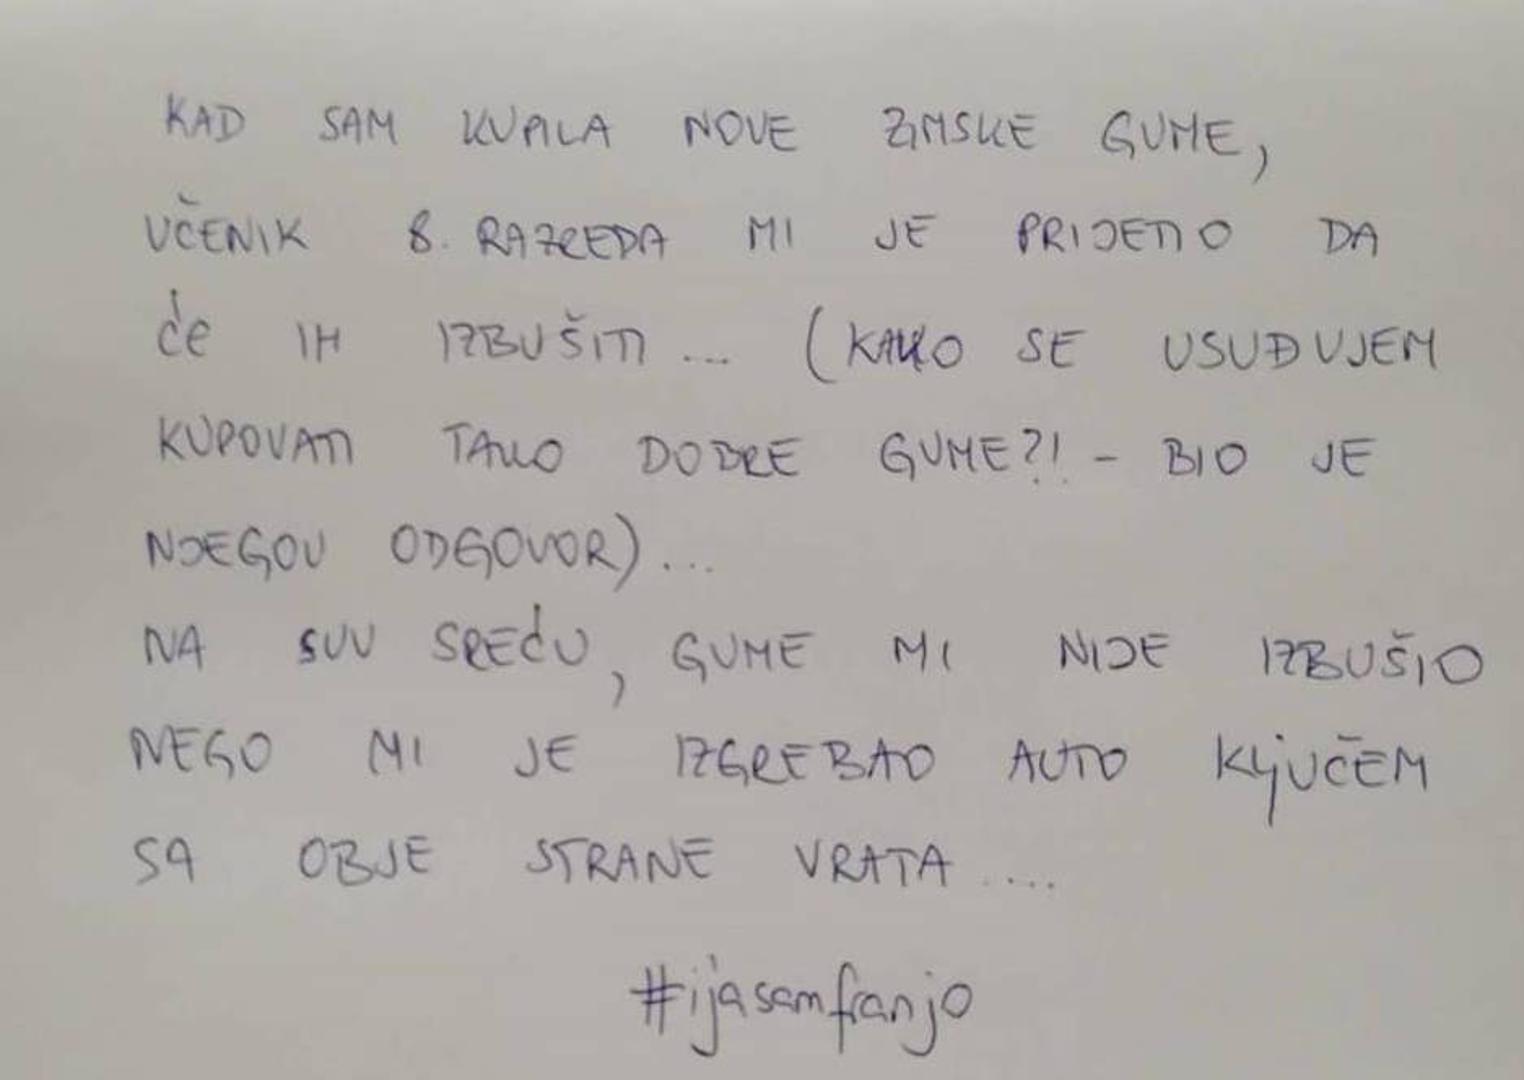 KAD SAM KUPILA NOVE ZIMSKE GUME,
UČENIK 8. RAZREDA MI JE PRIJETIO DA
ĆE IH IZBUŠITI ... (KAKO SE USUĐUJEM
KUPOVATI TAKO DOBRE GUME?! - BIO JE
NJEGOV ODGOVOR) ...
NA SVU SREĆU, GUME MI NIJE IZBUŠIO
NEGO MI JE IZGREBAO AUTO KLJUČEM
SA OBJE STRANE VRATA ....
#ijasamfranjo